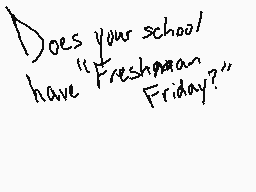 Does your school
have "Freshman
Friday?"